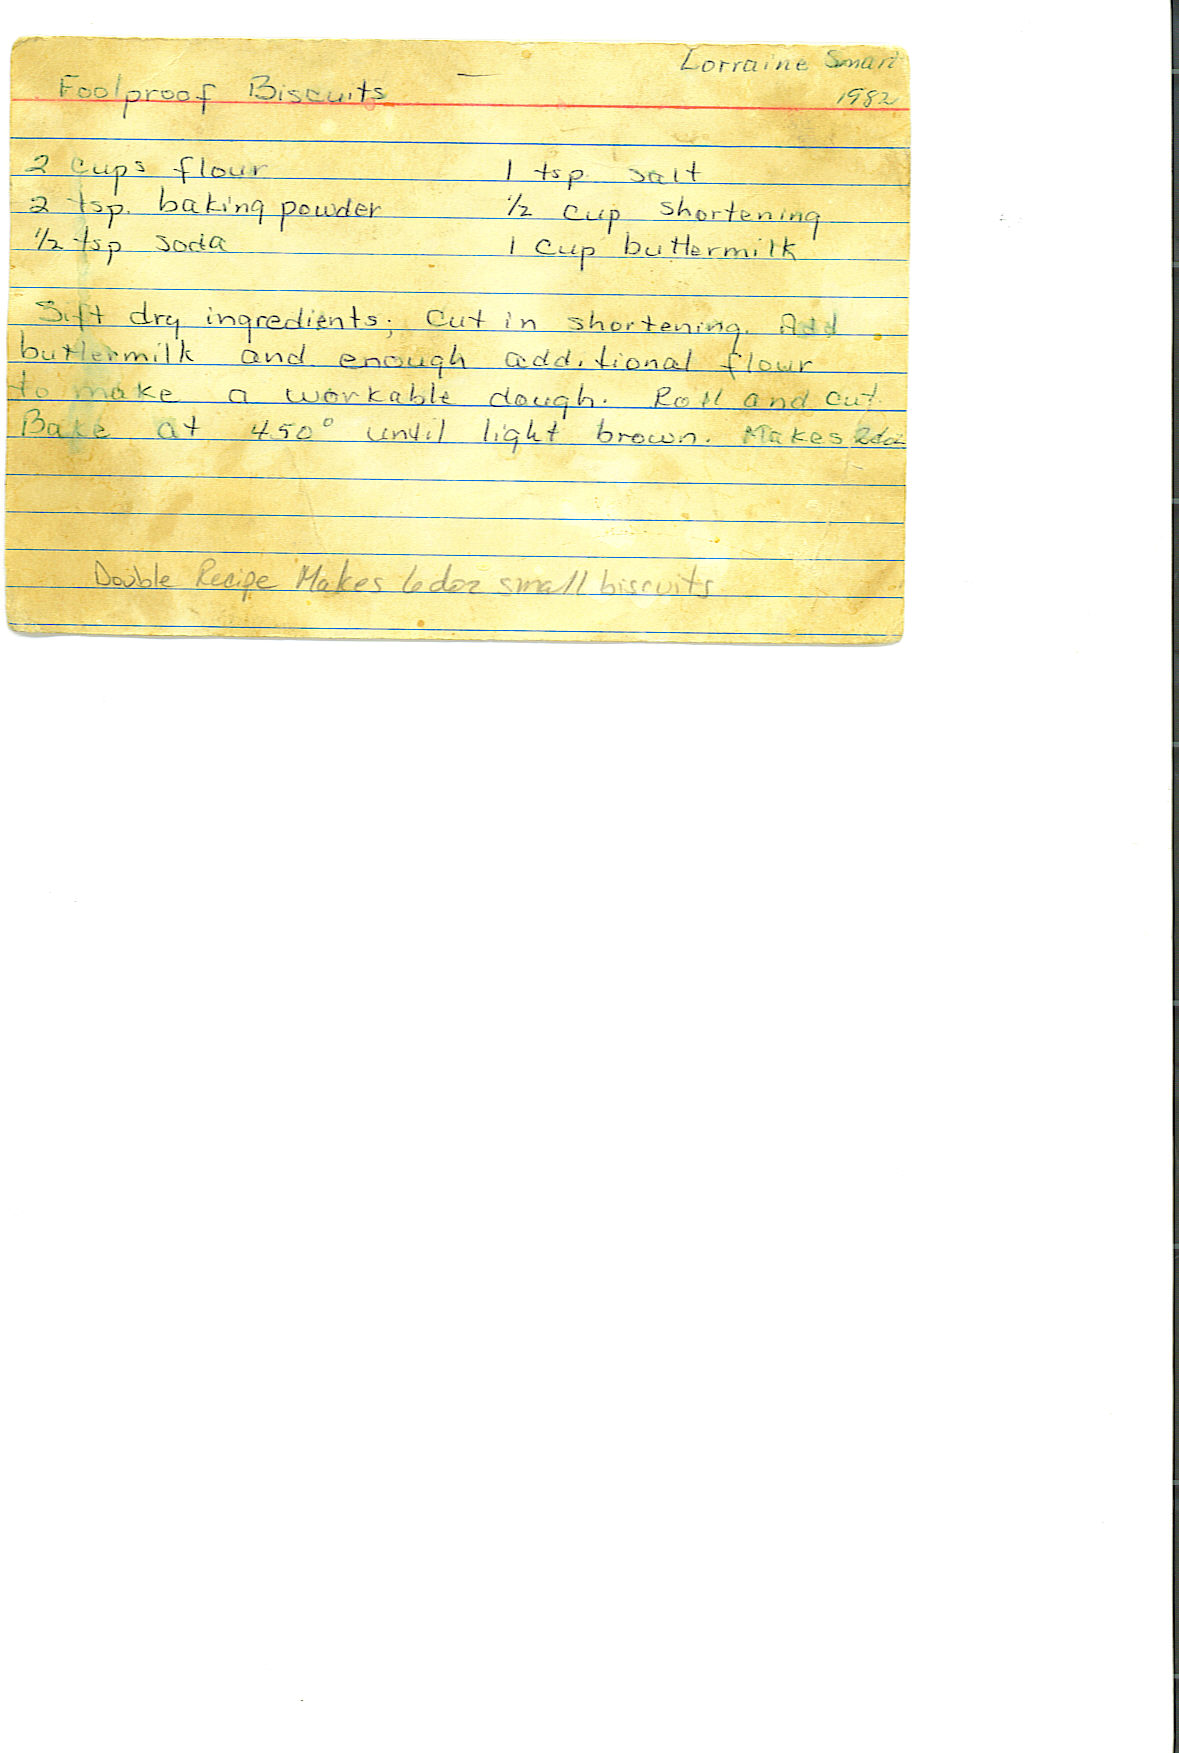 Lorraine Smart
Foolproof Biscuits
1982
2 cups flour 1 tsp. salt
2 tsp. baking powder ½ cup shortening
½ tsp soda 1 cup buttermilk
Sift dry ingredients; Cut in shortening. Add
buttermilk and enough additional flour
to make a workable dough. Roll and cut.
Bake at 450° until light brown. Makes 2doz
Double Recipe Makes 6 doz small biscuits